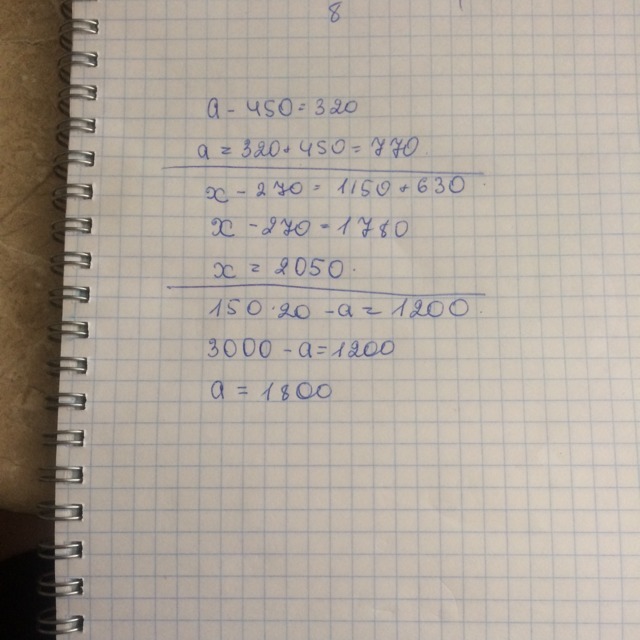 8
a - 450 = 320
a = 320 + 450 = 770
x - 270 = 1150 + 630
x - 270 = 1780
x = 2050.
150 · 20 - a = 1200.
3000 - a = 1200
a = 1800